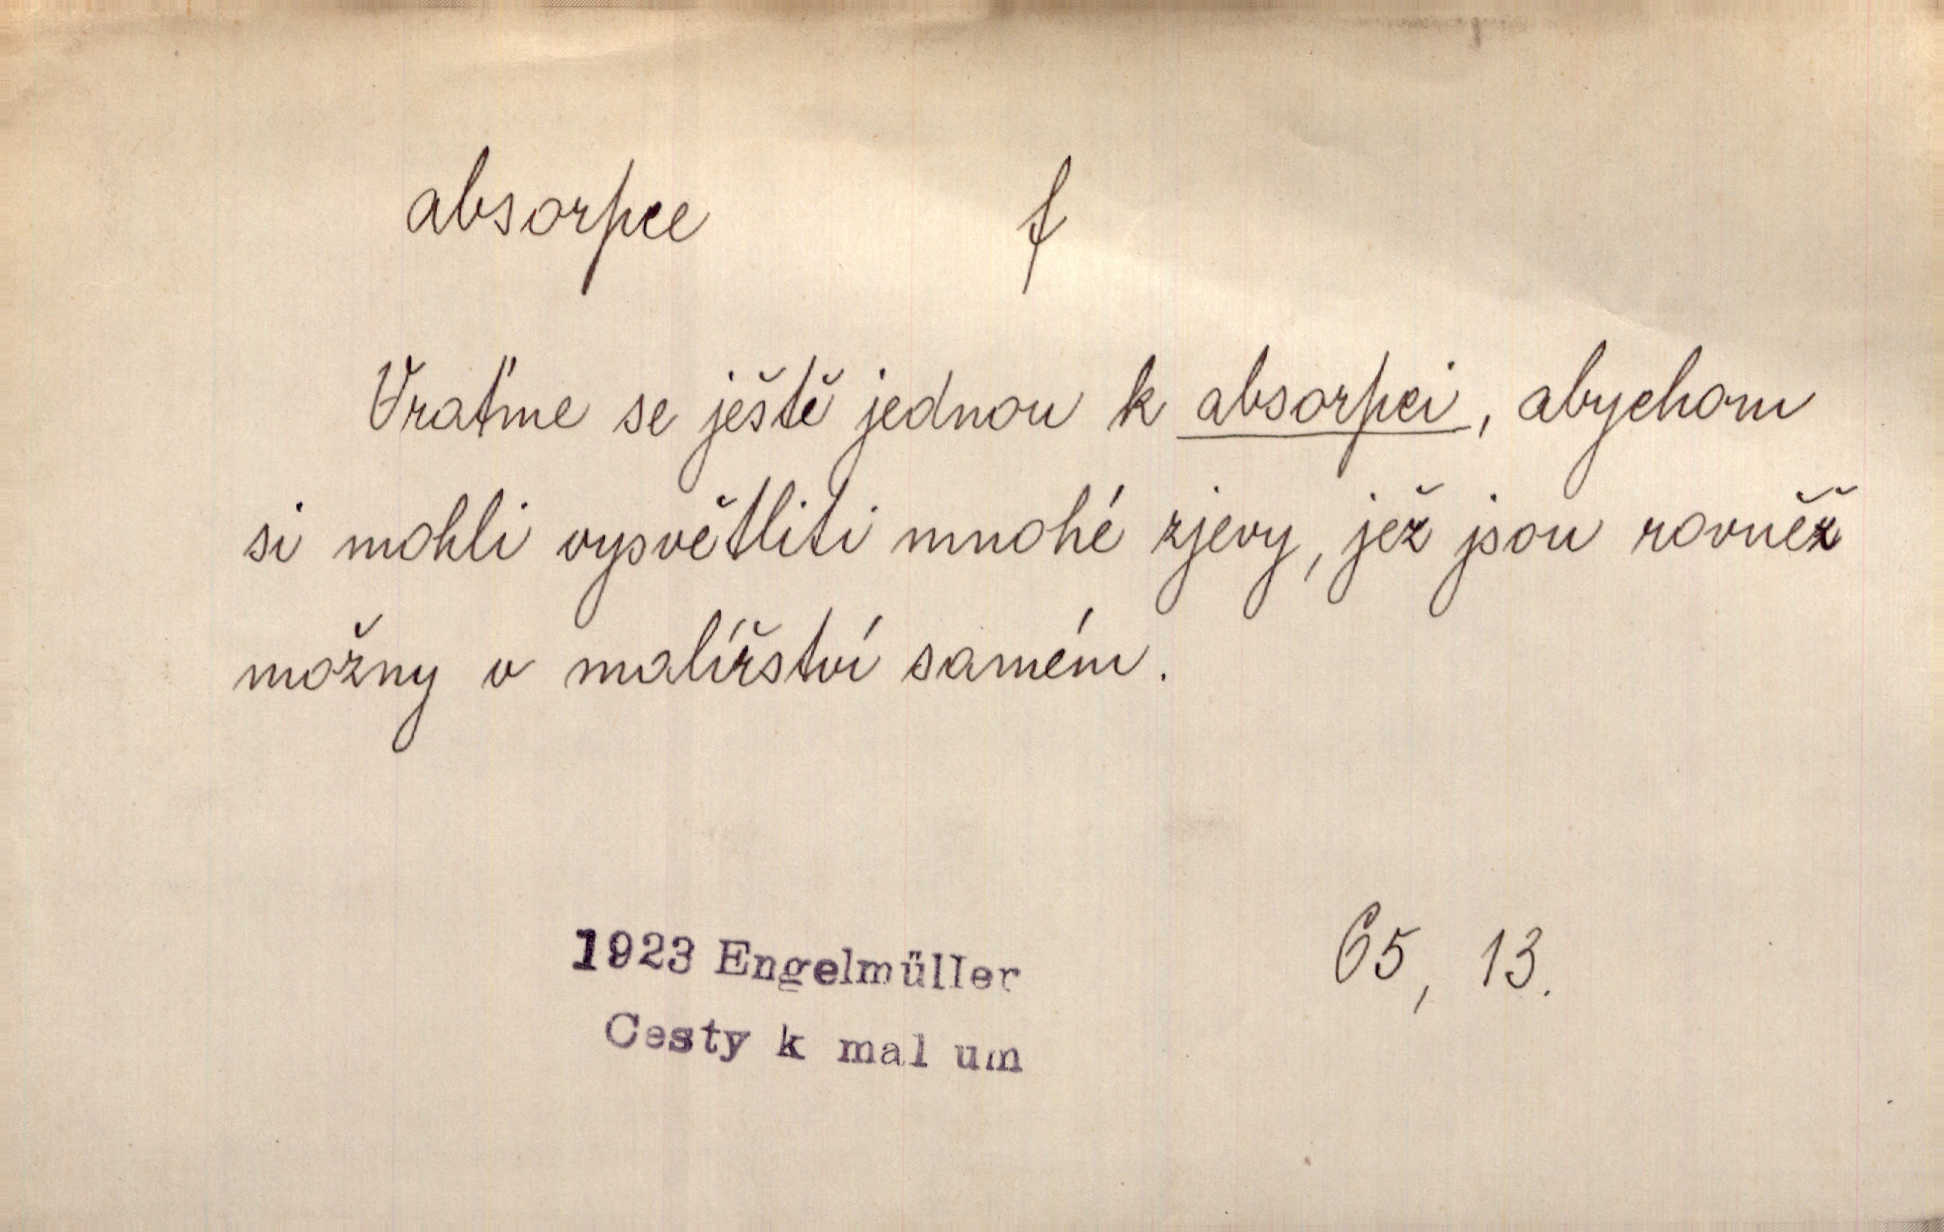 absorpce f
Vraťme se ještě jednou k absorpci, abychom
si mohli vysvětliti mnohé zjevy, jež jsou rovněž
možny v malířství samém.
1923 Engelmüller 65, 13.
Cesty k mal um